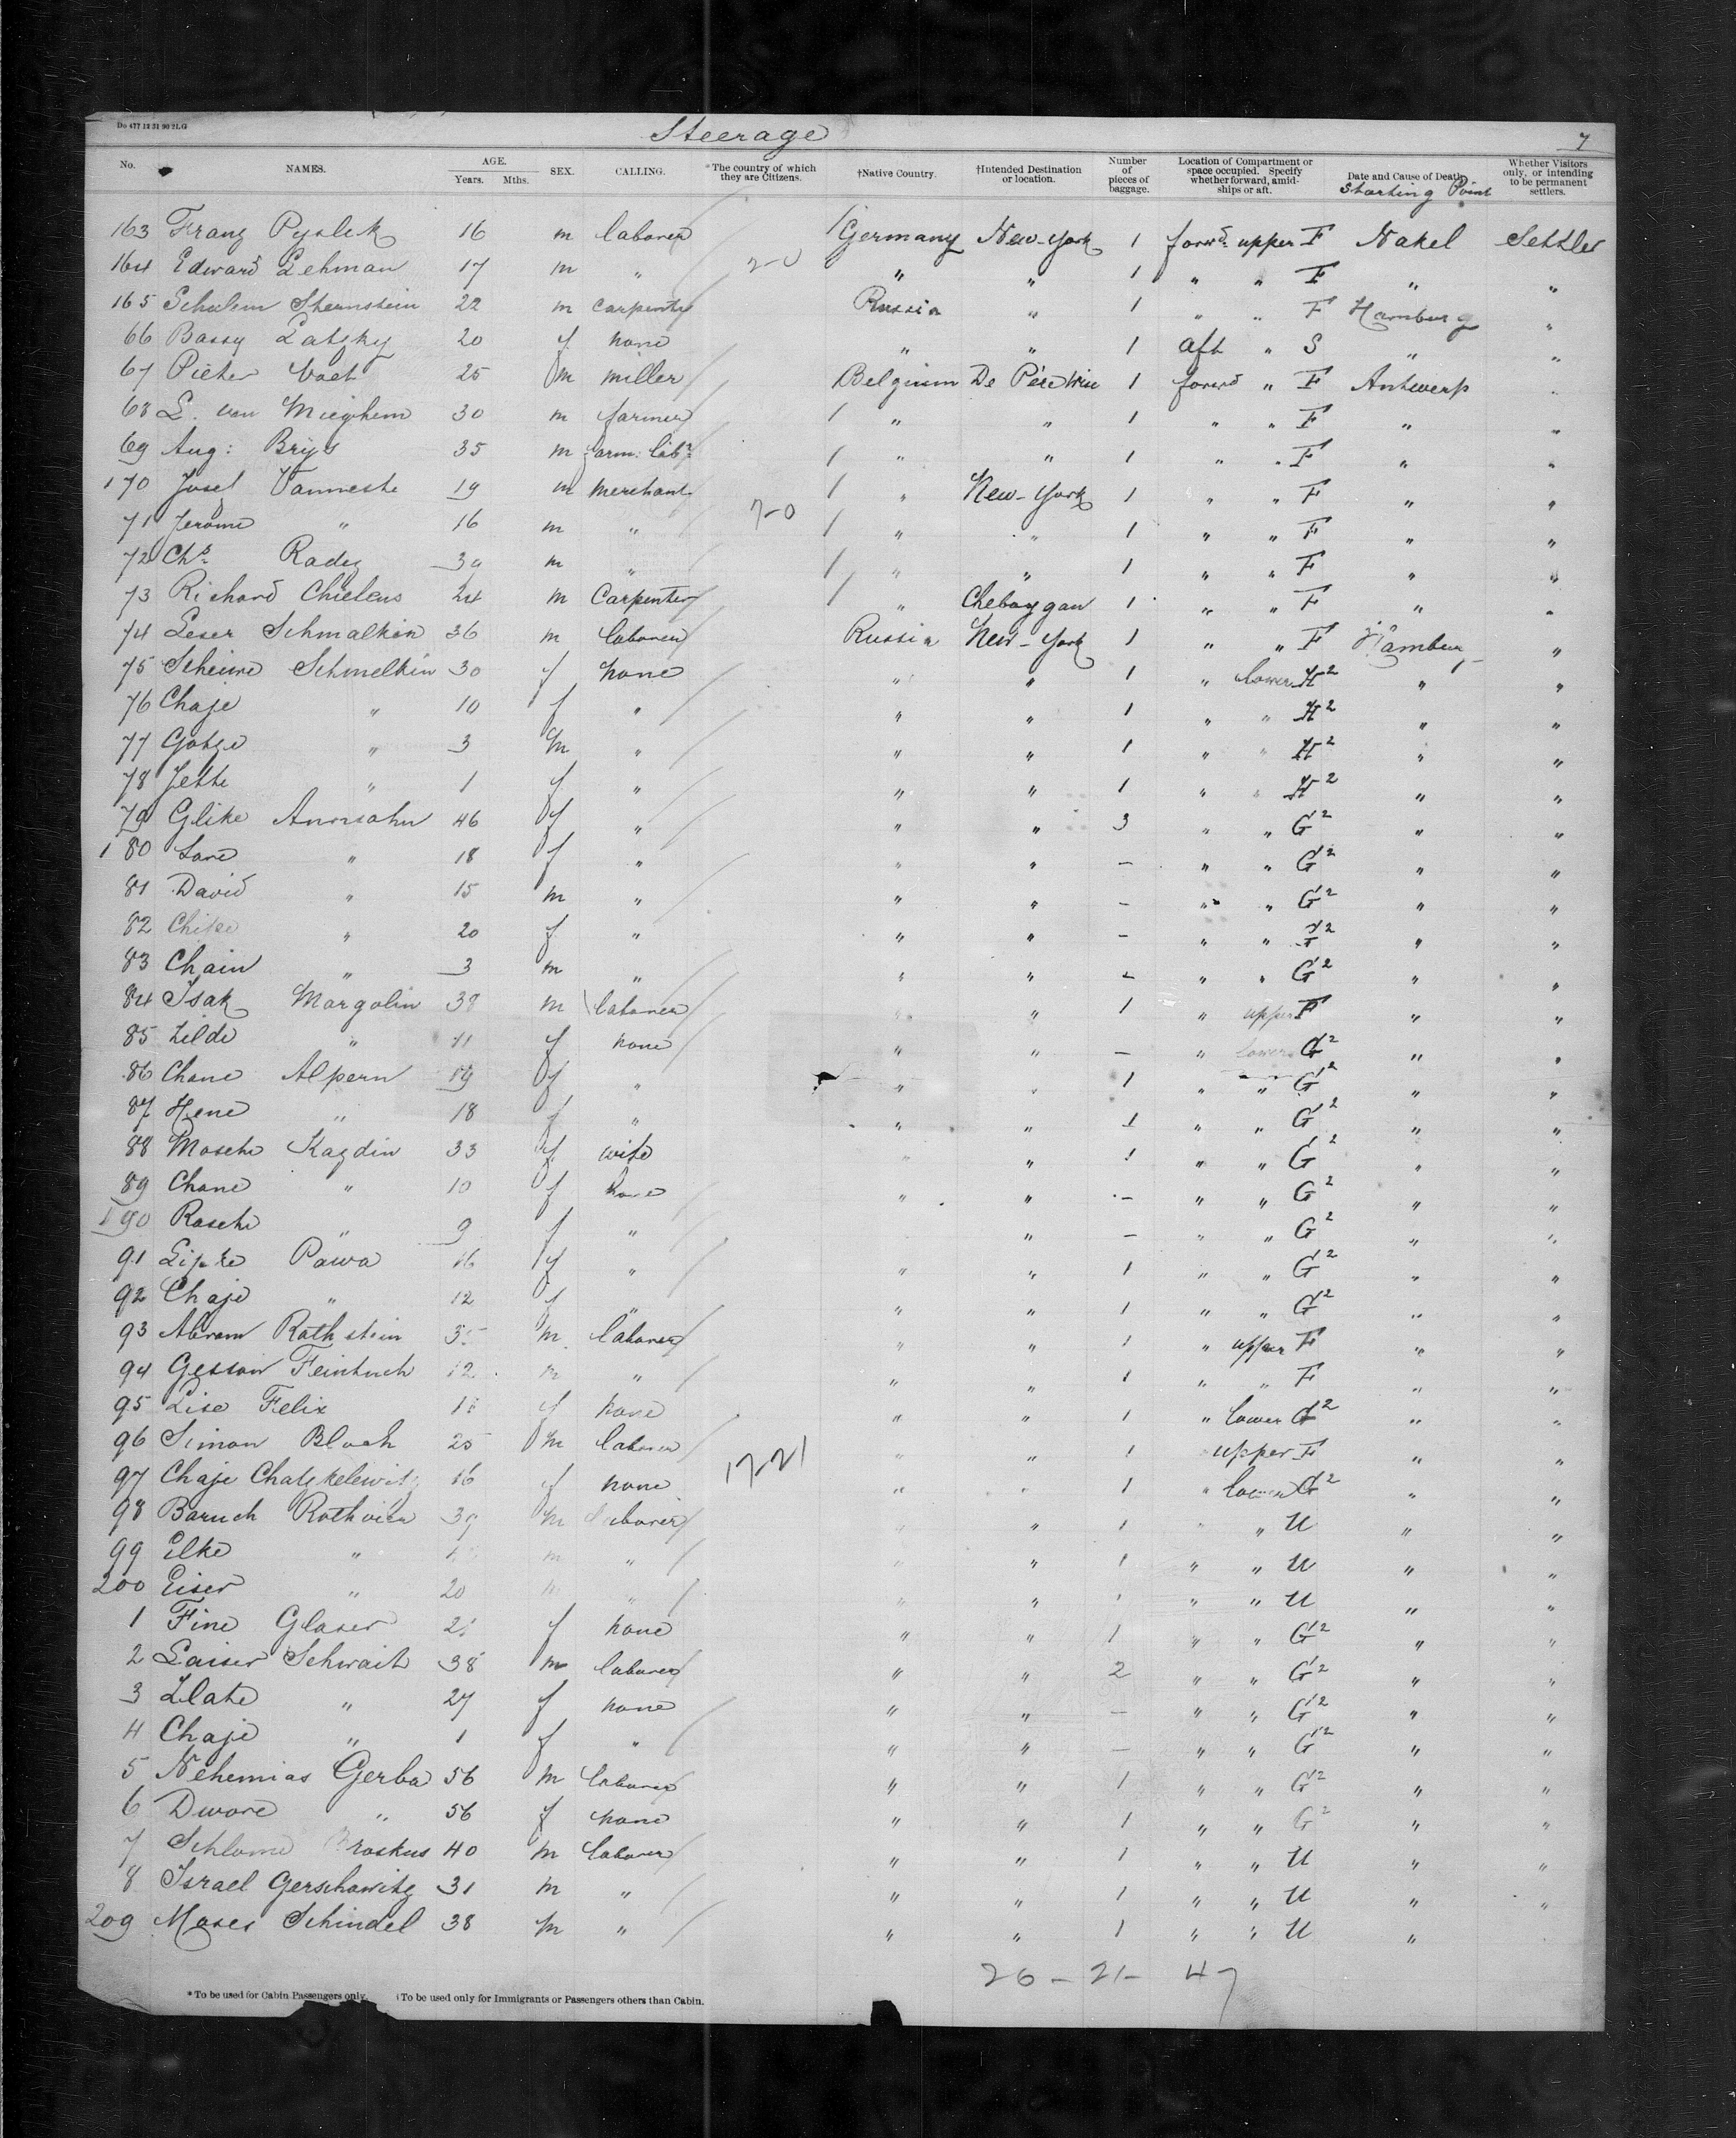 Do 477 12 31 90 2LG
Steerage 7
No. NAMES. AGE. Years. Mths. SEX. CALLING. *The country of which they are Citizens. †Native Country. †Intended Destination or location. Number of pieces of baggage. Location of Compartment or space occupied. Specify whether forward, amidships or aft. Date and Cause of Death. Starting Point Whether Visitors only, or intending to be permanent settlers.
163 Franz 16 m laborer Germany New-York 1 forwd upper F Nakel Settler
164 Edward Lehman 17 m " 2-0 " " 1 " " F " "
165 Schulem Sternstein 22 m carpenter Russia " 1 " " F Hamburg "
66 Bassy Latzky 20 f none " " 1 aft " S " "
67 Pieter Voet 25 m miller Belgium De Pére Wis 1 forwd " F Antwerp "
68 L. van Mieghem 30 m farmer " " 1 " " F " "
69 Aug: Brys 35 m farm: labr " " 1 " " F " "
170 Josef Vanneste 19 m merchant " New-York 1 " " F " "
71 Jerome " 16 m " 7-0 " " 1 " " F " "
72 Chs. Radez m " " " 1 " " F " "
73 Richard Chielens 24 m Carpenter " Cheboygan 1 " " F " "
74 Leser Schmalkin 36 m laborer Russia New-York 1 " " F Hamburg "
75 Scheine Schmelkin 30 f none " " 1 " lower H2 " "
76 Chaje " 10 f " " " 1 " " H2 " "
77 Gotze " 3 m " " " 1 " " H2 " "
78 Jette " 1 f " " " 1 " " H2 " "
79 Glike 46 f " " " 3 " " G2 " "
180 Sore " 18 f " " " - " " G2 " "
81 David " 15 m " " " - " " G2 " "
82 " 20 f " " " - " " " "
83 Chain " 3 m " " " - " " G2 " "
84 Isak Margolin 38 m laborer " " 1 " upper F " "
85 Zilde " 11 f none " " - " lower G2 " "
86 Chane Alpern 19 f " " " 1 " " G2 " "
87 Hene " 18 f " " " 1 " " G2 " "
88 Mosche Kagdin 33 f wife " " 1 " " G2 " "
89 Chane " 10 f none " " - " " G2 " "
190 Rasche " 9 f " " - " " G2 " "
91 Lipke Pawa 16 f " " " 1 " " G2 " "
92 Chaje " 12 f " " " 1 " " G2 " "
93 Abram Rothstein 35 m laborer " " 1 " upper F " "
94 Gesson Feintuch 12 m " " " 1 " " F " "
95 Lise Felix f none " " 1 " lower G2 " "
96 Simon Bloch 25 m laborer " " 1 upper F " "
97 Chaje Chatzkelewitz 16 f none 17-21 " " 1 " lower G2 " "
98 Baruch 39 m laborer " " 1 " " U " "
99 Elke " m " " " 1 " " U " "
200 Eiser " 20 " " " 1 " " U " "
1 Fine Glaser f none " " 1 " " G2 " "
2 Laiser Schwait 38 m laborer " " 2 " " G2 " "
3 Zlate " 27 f none " " - " " G2 " "
4 Chaje " 1 f " " " - " " G2 " "
5 Nehemias Gerba 56 m laborer " " 1 " " G2 " "
6 Dwore " 56 f none " " 1 " " G2 " "
7 Schlome 40 m laborer " " 1 " " U " "
8 Israel Gerschowitz 31 m " " " 1 " " U " "
209 Moses Schindel 38 m " " " 1 " " U "
26 - 21 - 47
*To be used for Cabin Passengers only. †To be used only for Immigrants or Passengers others than Cabin.